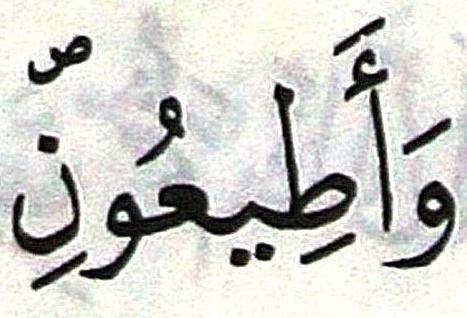 وَأَطِيعُونِ ص